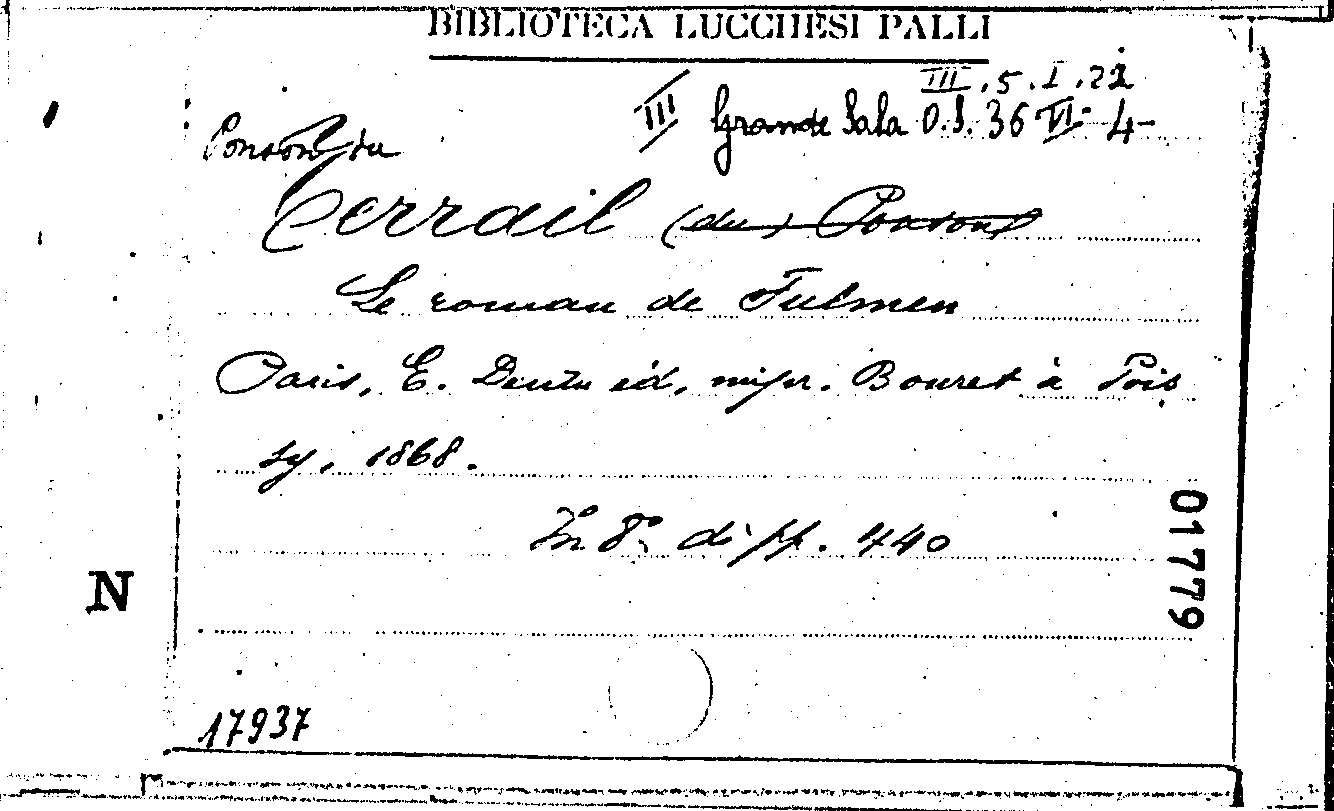 BIBLIOTECA LUCCHESI PALLI
III.5.I.22
III Grande Sala O.S. 36 VI 4
Ponson du
Terrail (du) Ponson)
Le roman de Fulmen
Paris, E. Dentu éd, impr. Bouret à Pois
sy, 1868.
In 8° di pp. 440
01779
N
17937